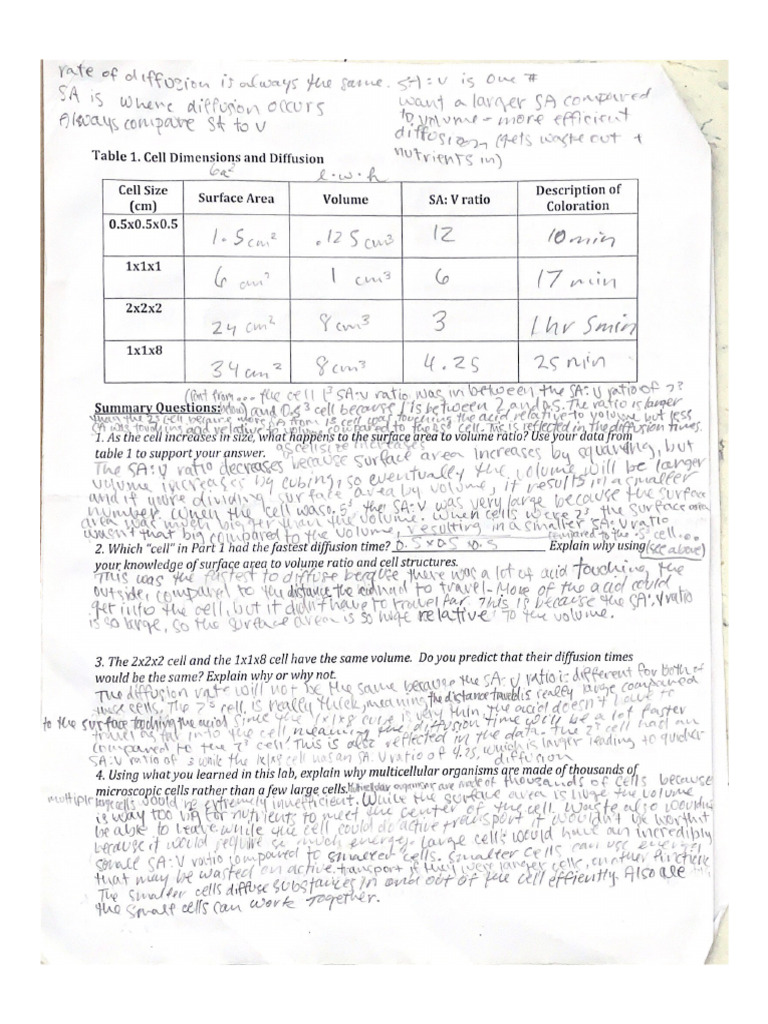 rate of diffusion is always the same.
SA is where diffusion occurs
Always compare SA to V
SA:V is one #
want a larger SA compared
to volume - more efficient
diffusion (gets waste out +
nutrients in)
Table 1. Cell Dimensions and Diffusion
6a² l·w·h
Cell Size (cm) Surface Area Volume SA: V ratio Description of Coloration
0.5x0.5x0.5 1.5cm² .125cm³ 12 10min
1x1x1 6 cm² 1 cm³ 6 17 min
2x2x2 24 cm² 8cm³ 3 1hr 5min
1x1x8 34cm² 8cm³ 4.25 25 min
the cell 1³ SA:V ratio was in between the SA:V ratio of 2³
Summary Questions: and 0.5³ cell because 1 is between 2 and .5. The ratio is larger
than the 2³ cell because more SA from 1³ cell was touching the acid relative to volume but less
SA was touching and relative to volume compared to the cell. This is reflected in the diffusion times.
1. As the cell increases in size, what happens to the surface area to volume ratio? Use your data from
table 1 to support your answer. as cell size increases
The SA:V ratio decreases because surface area increases by squaring, but
volume increases by cubing, so eventually the volume will be larger
and if you're dividing surface area by volume, it results in a smaller
number. When the cell was 0.5³ the SA:V was very large because the surface
area was much bigger than the volume. When cells were 2³ the surface area
wasn't that big compared to the volume, resulting in a smaller SA:V ratio
compared to the .5³ cell...
2. Which "cell" in Part 1 had the fastest diffusion time? 0.5 x 0.5 x 0.5 Explain why using (see above)
your knowledge of surface area to volume ratio and cell structures.
This was the fastest to diffuse because there was a lot of acid touching the
outside, compared to the distance the acid had to travel - More of the acid could
get into the cell, but it didn't have to travel far. This is because the SA:V ratio
is so large, so the surface area is so huge relative to the volume.
3. The 2x2x2 cell and the 1x1x8 cell have the same volume. Do you predict that their diffusion times
would be the same? Explain why or why not.
The diffusion rate will not be the same because the SA:V ratio is different for both of
these cells. The 2³ cell is really thick, meaning the distance traveled is really large compared
to the surface touching the acid. Since the 1x1x8 cube is very thin, the acid doesn't have to
travel as far into the cell, meaning the diffusion time will be a lot faster
compared to the 2³ cell. This is also reflected in the data. The 2³ cell had an
SA:V ratio of 3 while the 1x1x8 cell has an SA:V ratio of 4.25, which is larger leading to quicker
diffusion
4. Using what you learned in this lab, explain why multicellular organisms are made of thousands of
microscopic cells rather than a few large cells. Multicellular organisms are made of thousands of cells because
multiple large cells would be extremely inefficient. While the surface area is huge the volume
is way too big for nutrients to meet the center of the cell. Waste also wouldn't
be able to leave while the cell could do active transport it wouldn't be worth it
because it would require so much energy. Large cells would have an incredibly
small SA:V ratio compared to smaller cells. Smaller cells can use energy
that may be wasted on active transport if they were larger cells, on other functions
The smaller cells diffuse substances in and out of the cell efficiently. Also all
the small cells can work together.